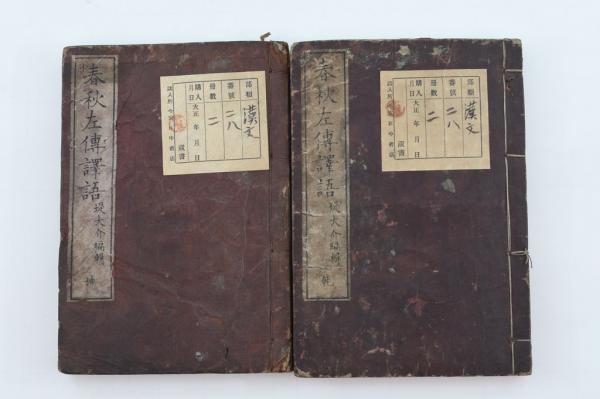 春秋左傳譯語 堤大介編輯 坤
部類 漢文
番號 二八
冊數 二
購入 大正 年 月 日
月日
藏書
春秋左傳譯語 堤大介編輯 乾
部類 漢文
番號 二八
冊數 二
購入 大正 年 月 日
月日
藏書